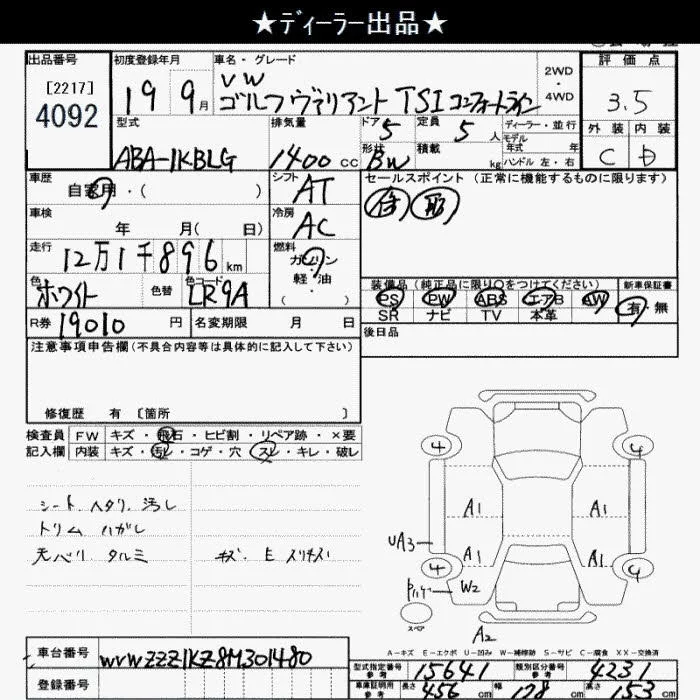 ★ディーラー出品★
出品番号 初度登録年月 車名・グレード 評価点
[2217] VW 2WD
4092 19 9月 ゴルフ ヴァリアント TSI コンフォートライン ・4WD 3.5
型式 排気量 ドア 5 定員 5人 ディーラー・並行 外装 内装
モデル年式 年
ABA-1KBLG 1400cc 形状 BW 積載 kg ハンドル 左・右 C D
車歴 シフト AT セールスポイント(正常に機能するものに限ります)
自家用・( )
車検 冷房 AC
年 月( 日)
走行 燃料
12万1千896km ガソリン
軽・油
・( )
色 色コード 装備品(純正品に限り○をつけてください) 新車保証書
ホワイト 色替 LR9A PS PW ABS エアB AW 有・無
SR ナビ TV 本革
R券 19010円 名変期限 月 日 後日品
注意事項申告欄(不具合内容等は具体的に記入して下さい)
修復歴 有 〔箇所 〕
検査員 FW キズ・飛石・ヒビ割・リペア跡・×要
記入欄 内装 キズ・汚れ・コゲ・穴・スレ・キレ・破レ
4 4
シート ヘタリ、汚し
A1 A1
トリム ハガレ
UA3
天バリ タルミ キズ、E スリキズ
A1 A1
4 4
W2
スペア
A2
A-キズ E-エクボ U-凹み W-補修跡 S-サビ C-腐食 XX-交換済
車台番号 WVWZZZ1KZ8M301480
型式指定番号 参考 15641 類別区分番号 参考 4231
登録番号 車庫証明用 参考 長さ 456cm 幅 178cm 高さ 153cm